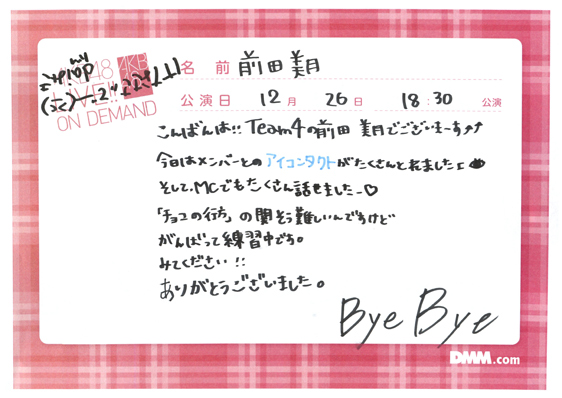 AKB48
LIVE!!
ON DEMAND
AKB
48
名 前 前田 美月
公演日 12月 26日 18:30 公演
こんばんは!! Team4の前田 美月でございまーす⤴⤴
今日はメンバーとのアイコンタクトがたくさんとれました
そして、MCでもたくさん話せましたー♡
「チョコの行方」の間奏難しいんですけど
がんばって練習中です。
みてください!!
ありがとうございました。
Bye Bye
DMM.com